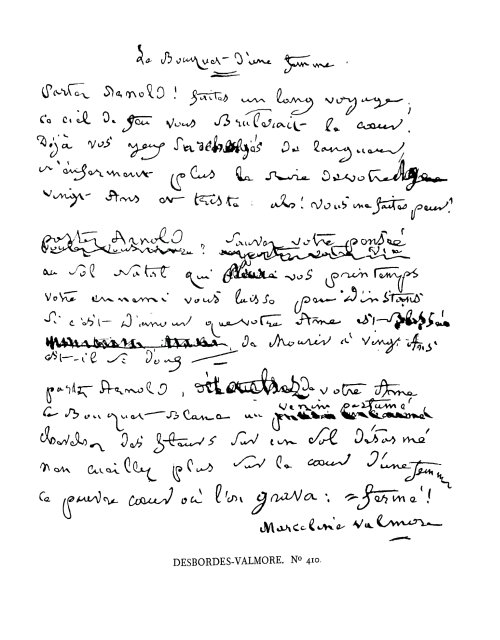 Le Bouquet d'une femme.
Partez Arnold! faites un long voyage;
ce ciel de feu vous Brûlerait le cœur.
Déjà vos yeux de langueur
n'enferment plus la de votre
vingt Ans et triste. als! vous me faites peur!
partez Arnold sauvez votre pensée
au sol Natal qui vos printemps
votre ennemi vous laisse peu d'instans
Si c'est D'amour que votre Ame est Blessée
De Mourir à vingt Ans
est-il si doux
partez Arnold, De votre Ame
ce Bouquet Blanc un venin parfumé
cherchez des fleurs sur un sol désarmé
non cueillez plus sur le cœur d'une femme
ce pauvre cœur où l'on grava: = fermé!
Marceline Valmore
DESBORDES-VALMORE. No 410.